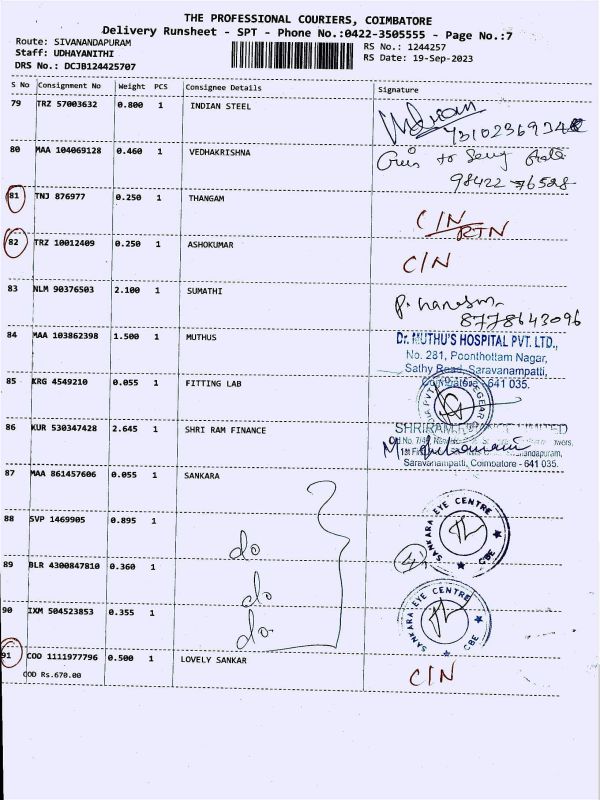 THE PROFESSIONAL COURIERS, COIMBATORE
Delivery Runsheet - SPT - Phone No.:0422-3505555 - Page No.:7
Route: SIVANANDAPURAM
Staff: UDHAYANITHI
DRS No.: DCJB124425707
RS No.: 1244257
RS Date: 19-Sep-2023
S No Consignment No Weight PCS Consignee Details Signature
79 TRZ 57003632 0.800 1 INDIAN STEEL
80 MAA 104069128 0.460 1 VEDHAKRISHNA
98422 76528
81 TNJ 876977 0.250 1 THANGAM C/N RTN
82 TRZ 10012409 0.250 1 ASHOKUMAR C/N
83 NLM 90376503 2.100 1 SUMATHI
8778643096
84 MAA 103862398 1.500 1 MUTHUS Dr. MUTHU'S HOSPITAL PVT. LTD.,
No. 281, Poonthottam Nagar,
Sathy Road, Saravanampatti,
Coimbatore - 641 035.
85 KRG 4549210 0.055 1 FITTING LAB
86 KUR 530347428 2.645 1 SHRI RAM FINANCE SHRIRAM LIMITED
Saravanampatti, Coimbatore - 641 035.
87 MAA 861457606 0.055 1 SANKARA
88 SVP 1469905 0.895 1 do SANKARA EYE CENTRE CBE
89 BLR 4300847810 0.360 1 do
90 IXM 504523853 0.355 1 do SANKARA EYE CENTRE CBE
91 COD 1111977796 0.500 1 LOVELY SANKAR C/N
COD Rs.670.00